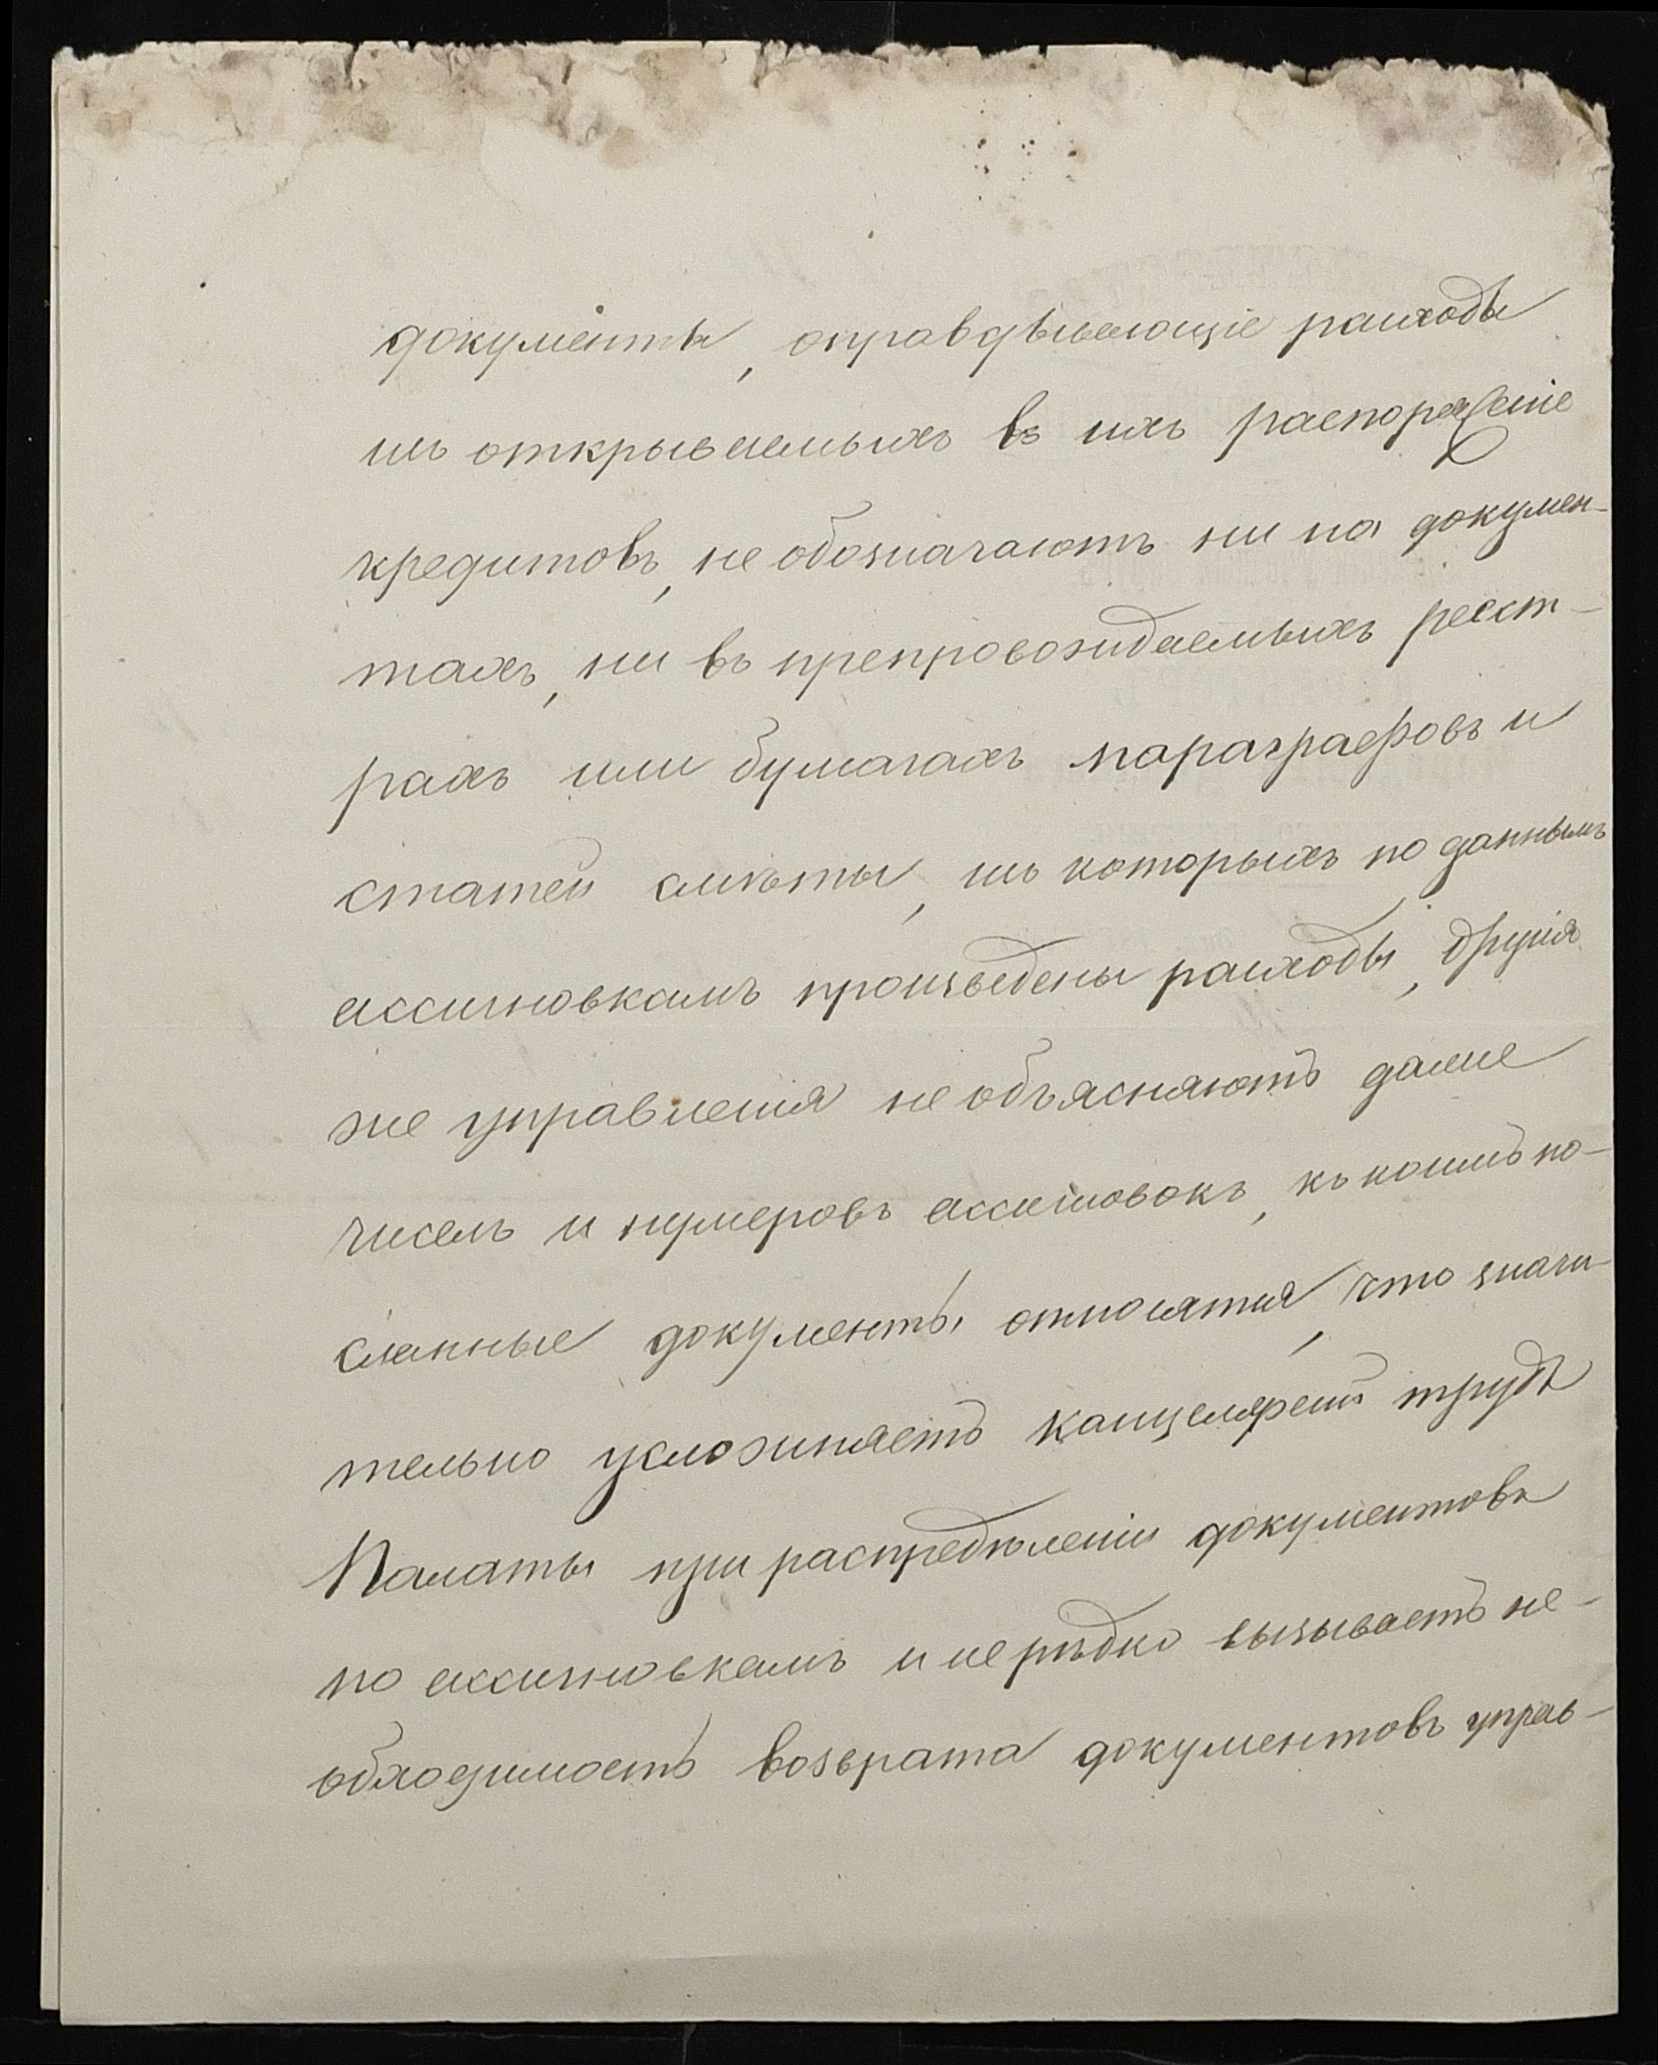 документы, оправдывающіе расходы
изъ открываемыхъ въ ихъ распоряженіе
кредитовъ, не обозначаютъ ни на докумен-
тахъ, ни въ препровождаемыхъ реест-
рахъ или бумагахъ параграфовъ и
статей смѣты, изъ которыхъ по даннымъ
ассигновкамъ произведены расходы, другія
же управленія не объясняютъ даже
чиселъ и нумеровъ ассигновокъ, къ коимъ по-
сланные документы относятся, что значи-
тельно усложняетъ канцеляріи трудъ
Палаты при распредѣленіи документовъ
по ассигновкамъ и не рѣдко вызываетъ не-
обходимость возврата документовъ управ-